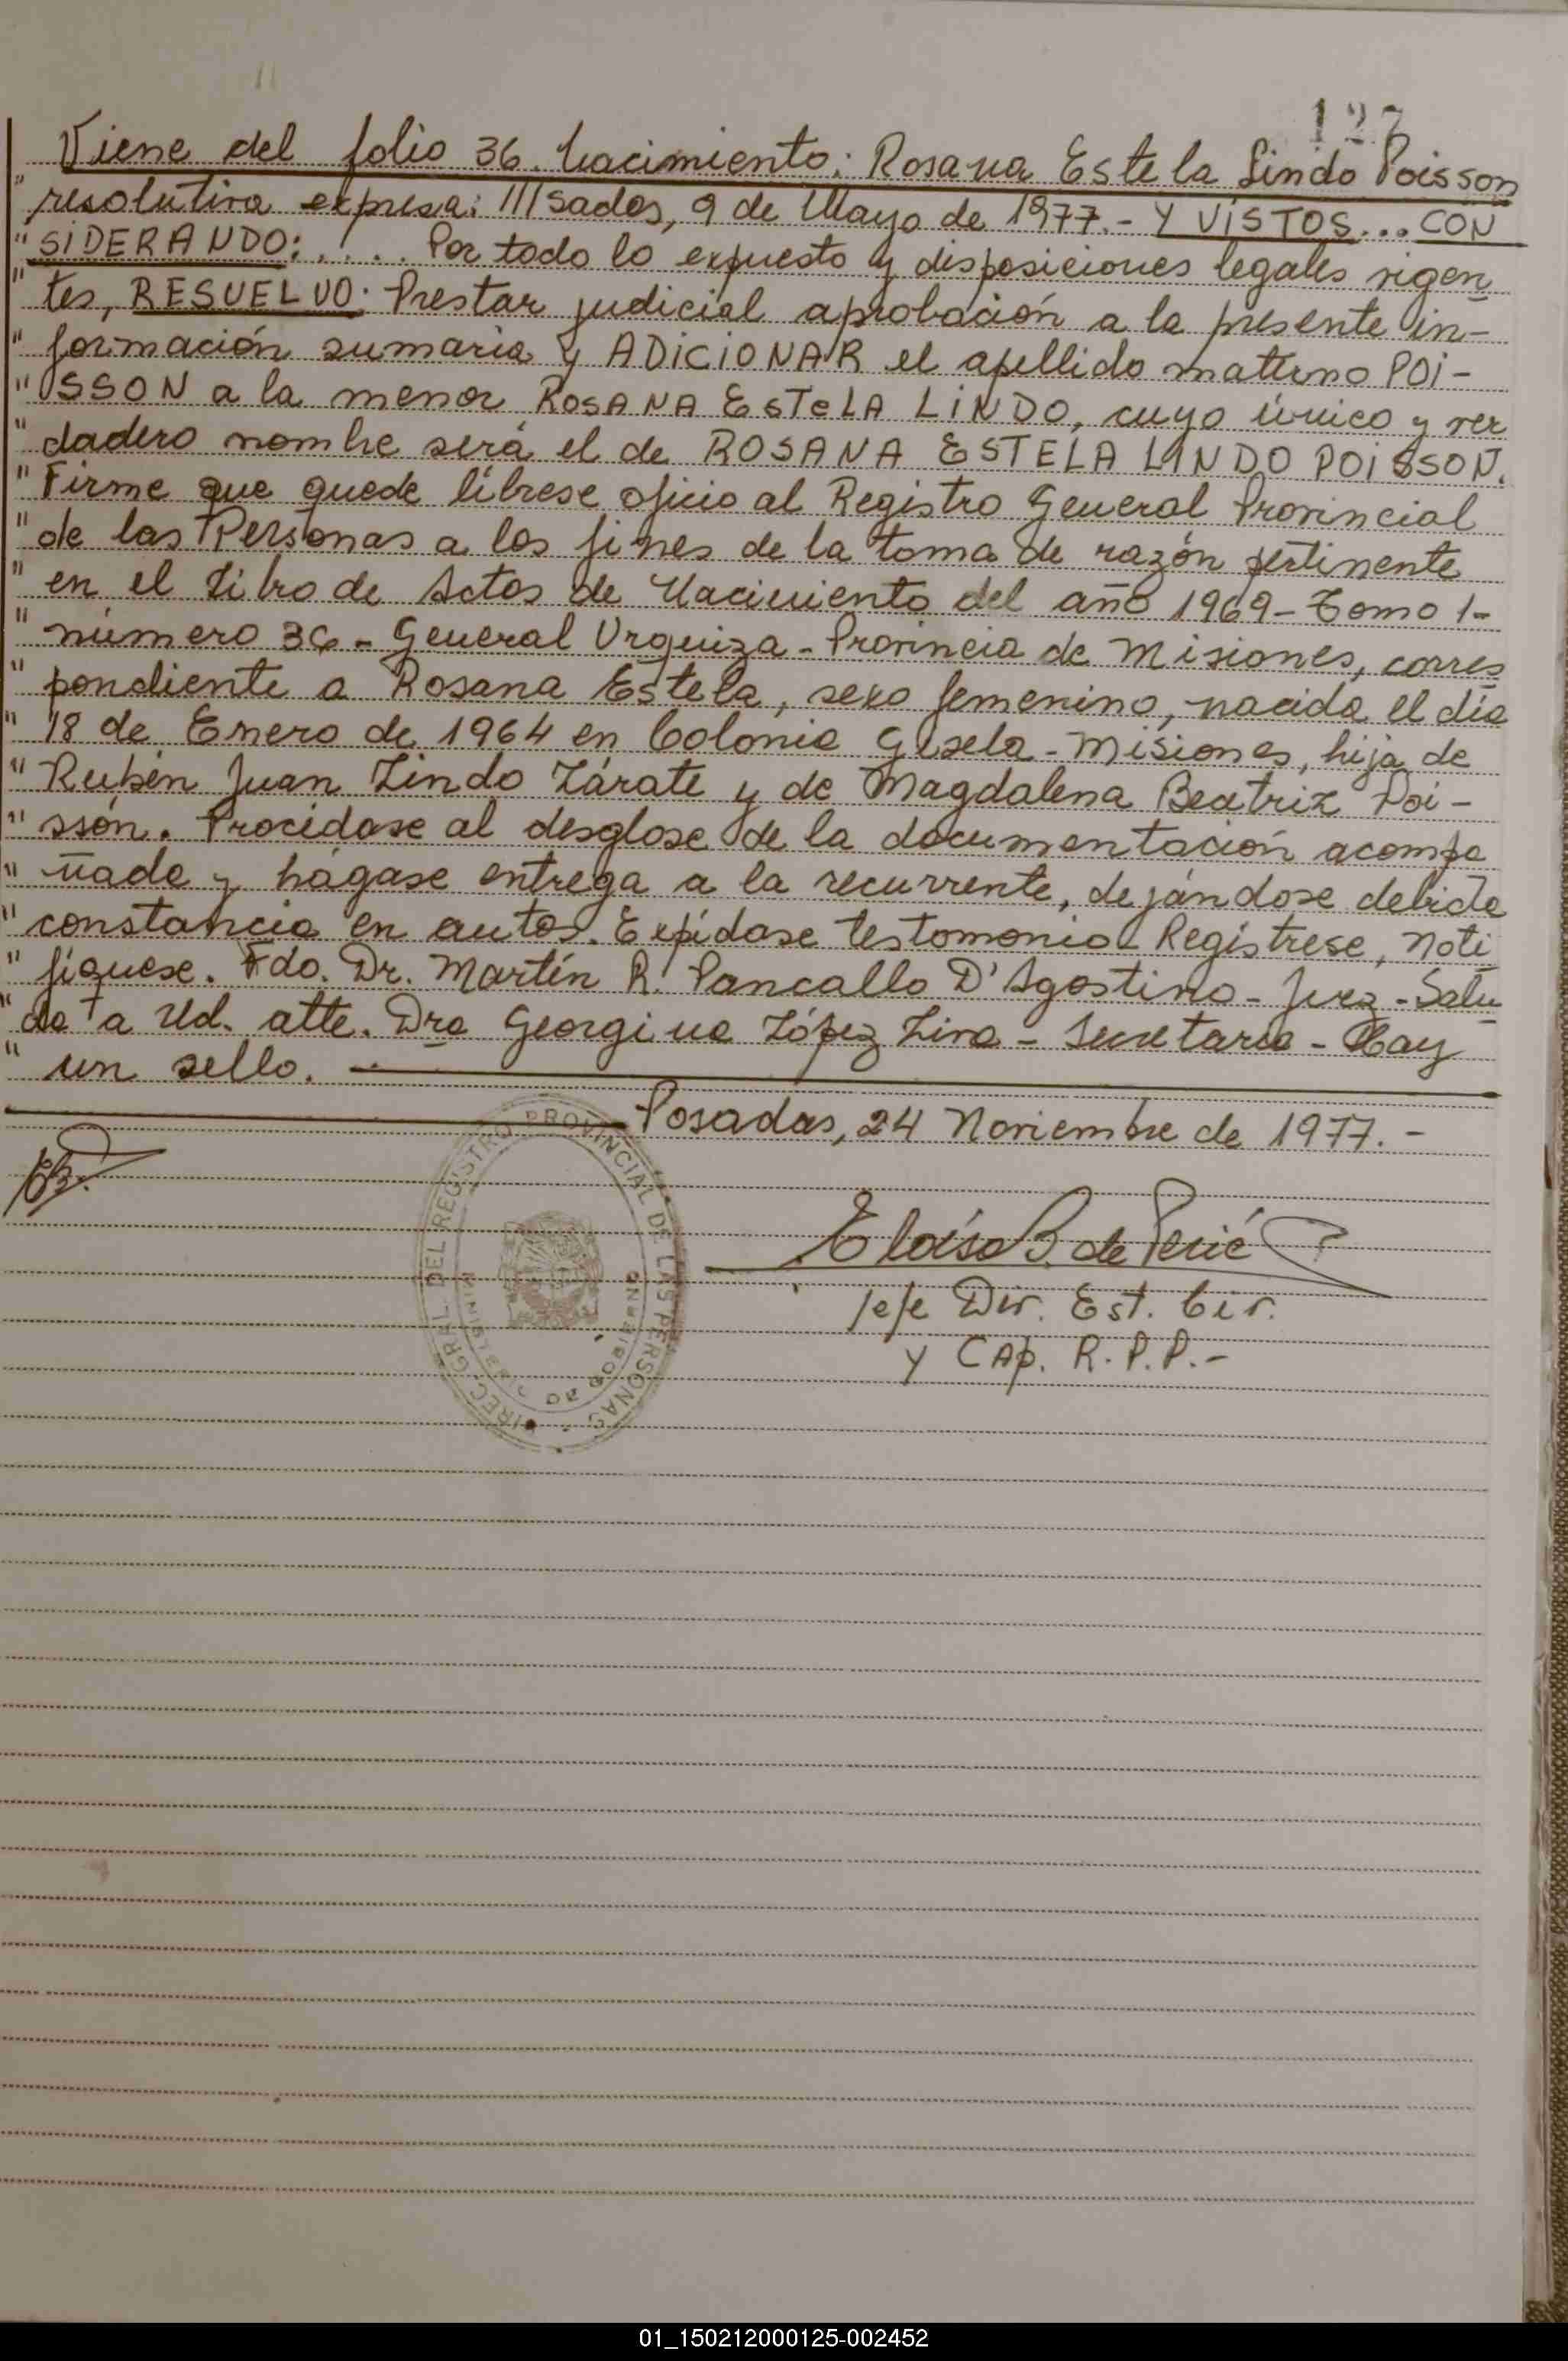 127
Viene del folio 36. Nacimiento: Rosana Estela Lindo Poisson
"resolutiva expresa: ///sadas, 9 de Mayo de 1977.- Y VISTOS... CON
"SIDERANDO:..... Por todo lo expuesto y disposiciones legales vigen
"tes, RESUELVO: Prestar judicial aprobación a la presente in-
"formación sumaria y ADICIONAR el apellido materno POI-
"SSON a la menor ROSANA ESTELA LINDO, cuyo único y ver
"dadero nombre será el de ROSANA ESTELA LINDO POISSON.
"Firme que quede líbrese oficio al Registro General Provincial
"de las Personas a los fines de la toma de razón pertinente
"en el Libro de Actas de Nacimiento del año 1969- Tomo 1-
"número 36- General Urquiza- Provincia de Misiones, corres
"pondiente a Rosana Estela, sexo femenino, nacida el día
"18 de Enero de 1964 en Colonia Gisela- Misiones, hija de
"Rubén Juan Lindo Zárate y de Magdalena Beatriz Poi-
"sson. Procédase al desglose de la documentación acompa
"ñada y hágase entrega a la recurrente, dejándose debida
"constancia en autos. Expídase testomonio- Regístrese, Noti
"fíquese. Fdo. Dr. Martín R. Pancallo D'Agostino- Juez- Salu
"da a Ud. atte. Dra Georgina López Lira- Secretaria- Hay
"un sello.
Posadas, 24 Noviembre de 1977.-
DIREC. GRAL. DEL REGISTRO PROVINCIAL DE LAS PERSONAS
GOBIERNO
Eloísa B. de Perié
Jefe Dir. Est. Civ.
y CAp. R.P.P.-
01_150212000125-002452